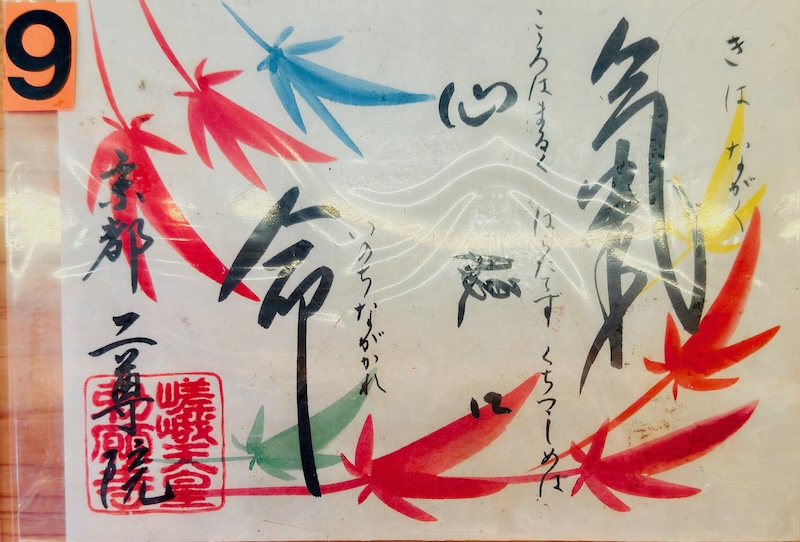 9
きはながく
氣
こころはまるく はらたてず くちつつしめば
心
口
いのちながかれ
命
京都 二尊院
嵯峨天皇